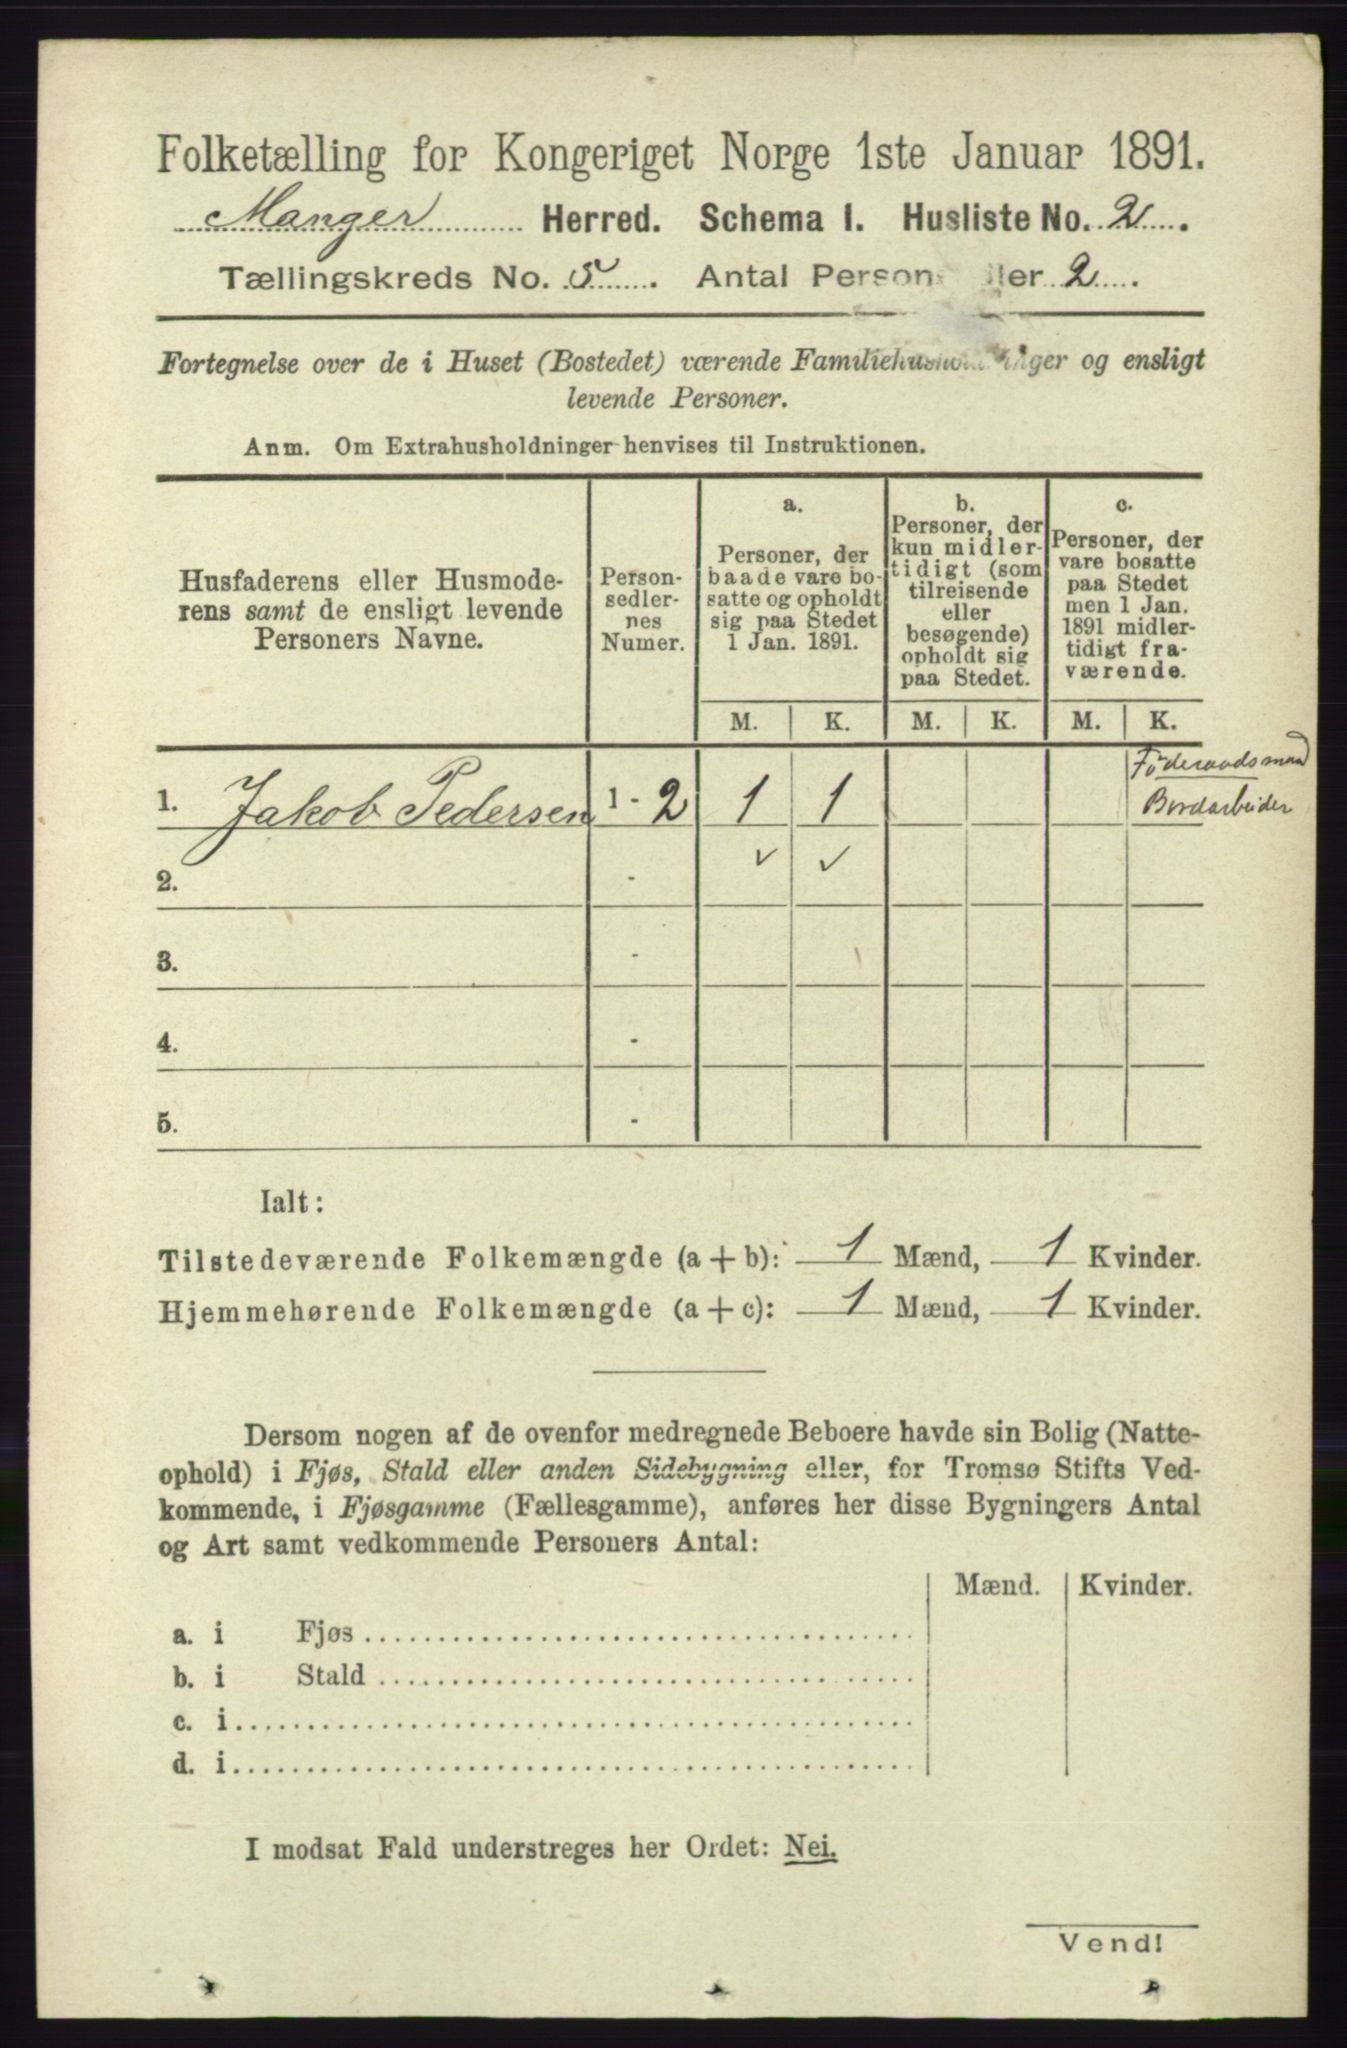 Folketælling for Kongeriget Norge 1ste Januar 1891.
Manger Herred. Schema I. Husliste No. 2.
Tællingskreds No. 5. Antal Person ller 2.
Fortegnelse over de i Huset (Bostedet) værende Familiehusholdninger og ensligt
levende Personer.
Anm. Om Extrahusholdninger henvises til Instruktionen.
Husfaderens eller Husmode-
rens samt de ensligt levende
Personers Navne.
Person-
sedler-
nes
Numer.
a.
Personer, der
baade vare bo-
satte og opholdt
sig paa Stedet
1 Jan. 1891.
b.
Personer, der
kun midler-
tidigt (som
tilreisende
eller
besøgende)
opholdt sig
paa Stedet.
c.
Personer, der
vare bosatte
paa Stedet
men 1 Jan.
1891 midler-
tidigt fra-
værende.
M. K. M. K. M. K.
Föderaadsmand
1. Jakob Pedersen 1 - 2 1 1 Bordarbeider
2. - ✓ ✓
3. -
4. -
5. -
Ialt:
Tilstedeværende Folkemængde (a + b): 1 Mænd, 1 Kvinder.
Hjemmehørende Folkemængde (a + c): 1 Mænd, 1 Kvinder.
Dersom nogen af de ovenfor medregnede Beboere havde sin Bolig (Natte-
ophold) i Fjøs, Stald eller anden Sidebygning eller, for Tromsø Stifts Ved-
kommende, i Fjøsgamme (Fællesgamme), anføres her disse Bygningers Antal
og Art samt vedkommende Personers Antal:
Mænd. Kvinder.
a. i Fjøs
b. i Stald
c. i
d. i
I modsat Fald understreges her Ordet: Nei.
Vend!